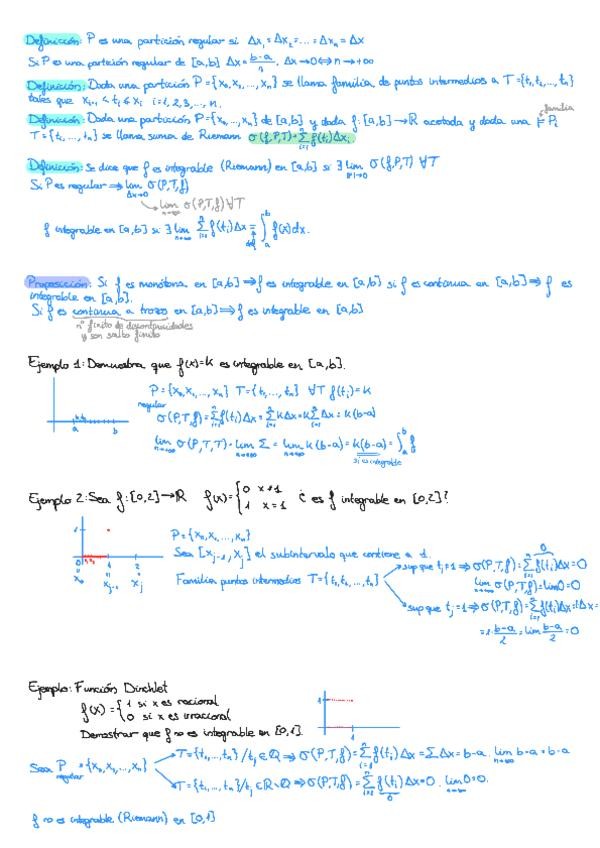 Definición: P es una partición regular si Δx₁ = Δx₂ = ... = Δxₙ = Δx
Si P es una partición regular de [a,b] Δx = (b-a)/n, Δx→0 ⇔ n→+∞
Definición: Dada una partición P={x₀,x₁,...,xₙ} se llama familia de puntos intermedios a T={t₁,t₂,...,tₙ}
tales que xᵢ₋₁ < tᵢ < xᵢ i=1,2,3,...,n.
familia
Definición: Dada una partición P={x₀,...,xₙ} de [a,b] y dada f:[a,b]→ℝ acotada y dada una
T={t₁,...,tₙ} se llama suma de Riemann σ(f,P,T)=∑ᵢ₌₁ⁿ f(tᵢ)Δxᵢ
Definición: Se dice que f es integrable (Riemann) en [a,b] si ∃ lim |P|→0 σ(f,P,T) ∀T
Si P es regular ⇒ lim Δx→0 σ(P,T,f)
lim n→∞ σ(P,T,f) ∀T
f integrable en [a,b] si ∃ lim n→∞ ∑ᵢ₌₁ⁿ f(tᵢ)Δx = ∫ₐᵇ f(x)dx.
Proposición: Si f es monótona en [a,b] ⇒ f es integrable en [a,b] si f es continua en [a,b] ⇒ f es
integrable en [a,b].
Si f es continua a trozos en [a,b] ⇒ f es integrable en [a,b]
nº finito de discontinuidades
y son salto finito
Ejemplo 1: Demuestra que f(x)=K es integrable en [a,b].
P={x₀,x₁,...,xₙ} T={t₁,...,tₙ} ∀T f(tᵢ)=K
regular
σ(P,T,f)=∑ᵢ₌₁ⁿ f(tᵢ)Δx=∑ᵢ₌₁ⁿ KΔx=K∑ᵢ₌₁ⁿ Δx=K(b-a)
a b
lim n→∞ σ(P,T,T)=lim n→∞ ∑=lim n→∞ K(b-a)=K(b-a)=∫ₐᵇ f
si es integrable
Ejemplo 2: Sea f:[0,2]→ℝ f(x)={0 x≠1
1 x=1 ¿ es f integrable en [0,2]?
P={x₀,x₁,...,xₙ}
Sea [xⱼ₋₁,xⱼ] el subintervalo que contiene a 1.
0 1 2
x₀ xⱼ₋₁ xⱼ
Familia puntos intermedios T={t₁,t₂,...,tₙ}
0
sup que tⱼ≠1 ⇒ σ(P,T,f)=∑ᵢ₌₁ⁿ f(tᵢ)Δx=0
lim n→∞ σ(P,T,f)=lim 0=0
sup que tⱼ=1 ⇒ σ(P,T,f)=∑ᵢ₌₁ⁿ f(tᵢ)Δx=1Δx=
=1·(b-a)/2=lim (b-a)/2=0
Ejemplo: Función Dirichlet
f(x)={1 si x es racional
0 si x es irracional
Demostrar que f no es integrable en [0,1].
1
Sea P={x₀,x₁,...,xₙ}
regular
T={t₁,...,tₙ}/tⱼ∈ℚ ⇒ σ(P,T,f)=∑ᵢ₌₁ⁿ f(tᵢ)Δx=∑Δx=b-a. lim n→∞ b-a=b-a
T={t₁,...,tₙ}/tⱼ∈ℝ\ℚ ⇒ σ(P,T,f)=∑ᵢ₌₁ⁿ f(tᵢ)Δx=0. lim n→∞ 0=0.
0
f no es integrable (Riemann) en [0,1]